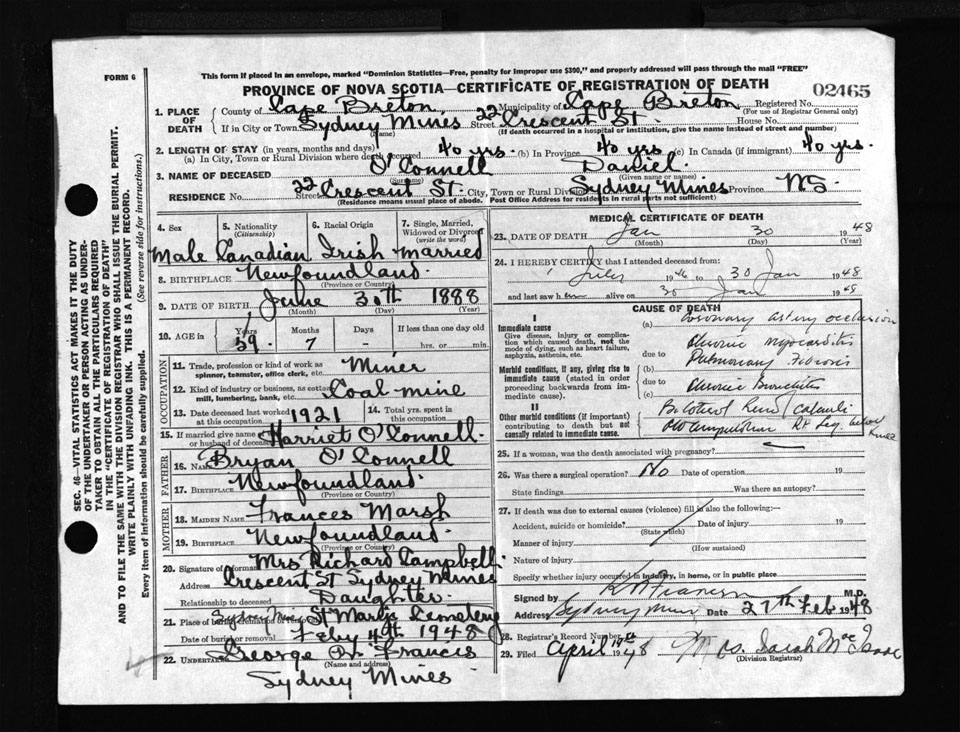 This form if placed in an envelope, marked "Dominion Statistics—Free, penalty for improper use $300," and properly addressed will pass through the mail "FREE"
FORM 6
PROVINCE OF NOVA SCOTIA—CERTIFICATE OF REGISTRATION OF DEATH
02465
1. PLACE OF DEATH County of Cape Breton Municipality of Cape Breton Registered No.
(For use of Registrar General only)
If in City or Town Sydney Mines Street 22 Crescent St. House No.
(Name) (If death occurred in a hospital or institution, give the name instead of street and number)
2. LENGTH OF STAY (in years, months and days)
(a) In City, Town or Rural Division where death occurred 40 yrs. (b) In Province 40 yrs (c) In Canada (if immigrant) 40 yrs.
3. NAME OF DECEASED O'Connell Daniel.
(Surname) (Given name or names)
RESIDENCE No. 22 Street Crescent St. City, Town or Rural Division Sydney Mines Province NS.
(Residence means usual place of abode. Post Office Address for residents in rural parts not sufficient)
SEC. 46—VITAL STATISTICS ACT MAKES IT THE DUTY
OF THE UNDERTAKER OR PERSON ACTING AS UNDER-
TAKER TO OBTAIN ALL THE PARTICULARS REQUIRED
IN THE "CERTIFICATE OF REGISTRATION OF DEATH"
AND TO FILE THE SAME WITH THE DIVISION REGISTRAR WHO SHALL ISSUE THE BURIAL PERMIT.
WRITE PLAINLY WITH UNFADING INK. THIS IS A PERMANENT RECORD.
Every item of information should be carefully supplied. (See reverse side for instructions.)
4. Sex 5. Nationality (Citizenship) 6. Racial Origin 7. Single, Married, Widowed or Divorced (write the word)
Male Canadian Irish Married
8. BIRTHPLACE Newfoundland.
(Province or Country)
9. DATE OF BIRTH June 30th 1888
(Month) (Day) (Year)
10. AGE in Years Months Days If less than one day old
59. 7 - hrs. or min.
OCCUPATION
11. Trade, profession or kind of work as spinner, teamster, office clerk, etc. Miner
12. Kind of industry or business, as cotton mill, lumbering, bank, etc. Coal mine
13. Date deceased last worked at this occupation 1921 14. Total yrs. spent in this occupation
15. If married give name of wife or husband of deceased Harriet O'Connell.
FATHER
16. Name Bryan O'Connell
17. Birthplace Newfoundland.
(Province or Country)
MOTHER
18. MAIDEN NAME Frances Marsh
19. Birthplace Newfoundland.
(Province or Country)
20. Signature of informant Mrs Richard Campbell
Address Crescent St Sydney Mines
Relationship to deceased Daughter.
21. Place of burial Sydney St Mary's Cemetery
Date of burial or removal Feby 4th 1948
22. UNDERTAKER George Francis
(Name and address)
Sydney Mines
MEDICAL CERTIFICATE OF DEATH
23. DATE OF DEATH Jan 30 1948
(Month) (Day) (Year)
24. I HEREBY CERTIFY that I attended deceased from:
July 1946 to 30 Jan 1948
and last saw him alive on 30 Jan 1948
CAUSE OF DEATH
I
Immediate cause (a) Coronary artery occlusion
Give disease, injury or complication which caused death, not the mode of dying, such as heart failure, asphyxia, asthenia, etc.
due to Chronic Myocarditis
Morbid conditions, if any, giving rise to immediate cause (stated in order proceeding backwards from immediate cause).
(b) Pulmonary Fibrosis
due to
(c) Chronic Bronchitis
II
Other morbid conditions (if important) contributing to death but not causally related to immediate cause.
Bilateral Renal Calculi
Old amputation Rt leg below knee
25. If a woman, was the death associated with pregnancy?
26. Was there a surgical operation? No Date of operation 19
State findings Was there an autopsy?
27. If death was due to external causes (violence) fill in also the following:
Accident, suicide or homicide? Date of injury 19
(State which)
Manner of injury
(How sustained)
Nature of injury
Specify whether injury occurred in industry, in home, or in public place
Signed by Francis M.D.
Address Sydney Mines Date 27th Feb 1948
28. Registrar's Record Number
29. Filed April 1948 Mrs. Sarah MacIsaac
(Division Registrar)